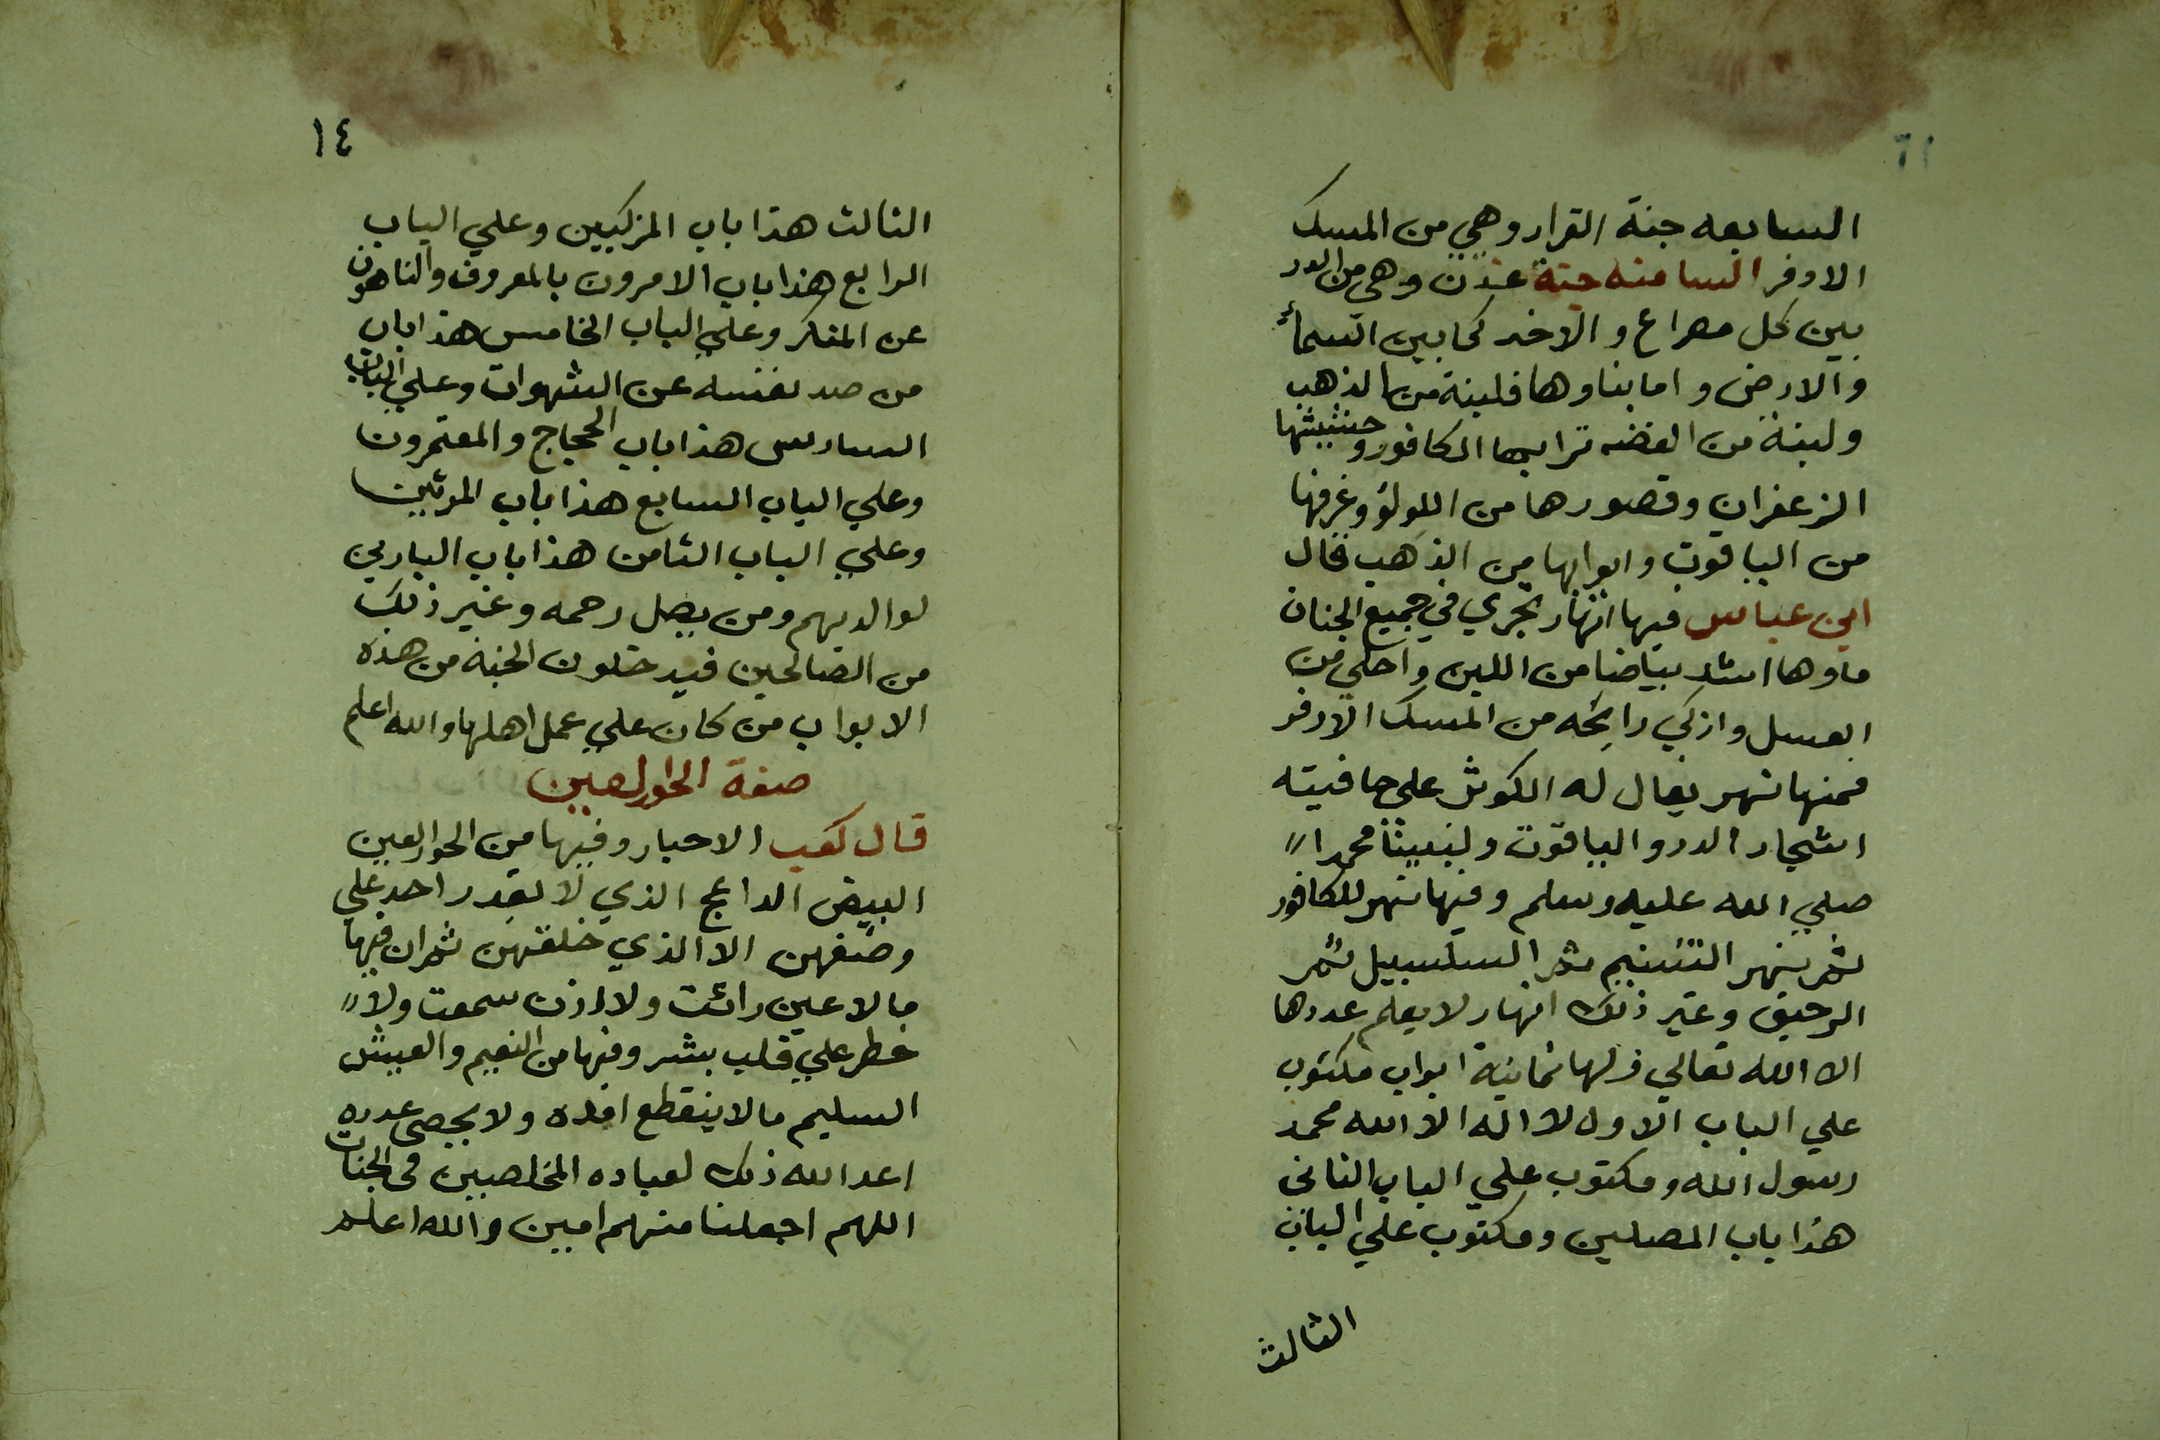 السابعه جنة القرار وهي من المسك
الادفر السامنه جنة عدن وهي من الدر
بين كل مصراع والاخر كما بين السمأ
والارض واما بناوها فلبنة من الذهب
ولبنة من الفضه ترابها الكافور وحشيشها
الزعفران وقصورها من اللولؤ وغرفها
من الياقوت وابوابها من الذهب فقال
ابن عباس فيها انهار تجري في جميع الجنان
ماوها اشد بياضا من اللبن واحلي من
العسل وازكي رائحه من المسك الادفر
فمنها نهر يقال له الكوثر علي حافيته
اشجار الدر والياقوت ولنبينا محمدا
صلي الله عليه وسلم وفيها نهر للكافور
ثم نهر التسنيم ثم السلسبيل ثم
الرحيق وغير ذلك انهار لا يعلم عددها
الا الله تعالي ولها ثمانية ابواب مكتوب
علي الباب الاول لا اله الا الله محمد
رسول الله ومكتوب علي الباب الثاني
هذا باب المصلين ومكتوب علي الباب
الثالث
١٤
الثالث هذا باب المزكيين وعلي الباب
الرابع هذا باب الامرون بالمعروف والناهون
عن المنكر وعلي الباب الخامس هذا باب
من صد نفسه عن الشهوات وعلي الباب
السادس هذا باب الحجاج والمعتمرون
وعلي الباب السابع هذا باب
وعلي الباب الثامن هذا باب البارين
لوالديهم ومن يصل رحمه وغير ذلك
من الصالحين فيدخلون الجنة من هذه
الابواب من كان علي عمل اهلها والله اعلم
صفة الحور العين
قال كعب الاحبار وفيها من الحور العين
البيض الداعج الذي لا يقدر احد علي
وصفهن الا الذي خلقهن ثم ان فيها
ما لا عين رائت ولا اذن سمعت ولا
خطر علي قلب بشر وفيها من النعيم والعيش
السليم ما لا ينقطع امده ولا يحصي عدده
اعد الله ذلك لعباده المخلصين في الجنات
اللهم اجعلنا منهم امين والله اعلم